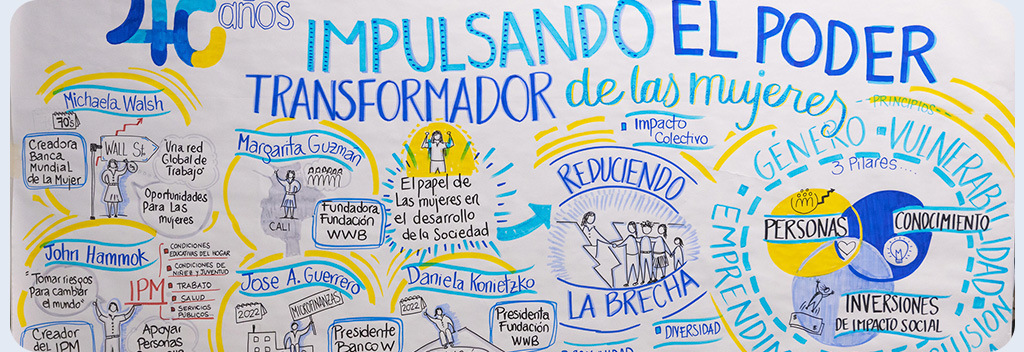 40 años
IMPULSANDO EL PODER
TRANSFORMADOR de las mujeres
Michaela Walsh
70's
WALL St.
Creadora
Banca
Mundial
de la Mujer
Una red
Global de
Trabajo
Oportunidades
Para Las
mujeres
Margarita Guzmán
CALI
Fundadora
Fundación
WWB
El papel de
Las mujeres en
el desarrollo
de la Sociedad
Impacto
Colectivo
REDUCIENDO
LA BRECHA
DIVERSIDAD
PRINCIPIOS
GÉNERO - VULNERABILIDAD
EMPRENDI
3 Pilares....
PERSONAS
CONOCIMIENTO
INVERSIONES
DE IMPACTO SOCIAL
John Hammok
"Tomar riesgos
Para cambiar
el mundo"
IPM
CONDICIONES
EDUCATIVAS DEL HOGAR
CONDICIONES DE
NIÑEZ Y JUVENTUD
TRABAJO
SALUD
SERVICIOS
PÚBLICOS
Creador
del IPM
Apoyar
Personas
Jose A. Guerrero
2022
MICROFINANZAS
Presidente
Banco W
Daniela Konietzko
2022
Presidenta
Fundación
WWB